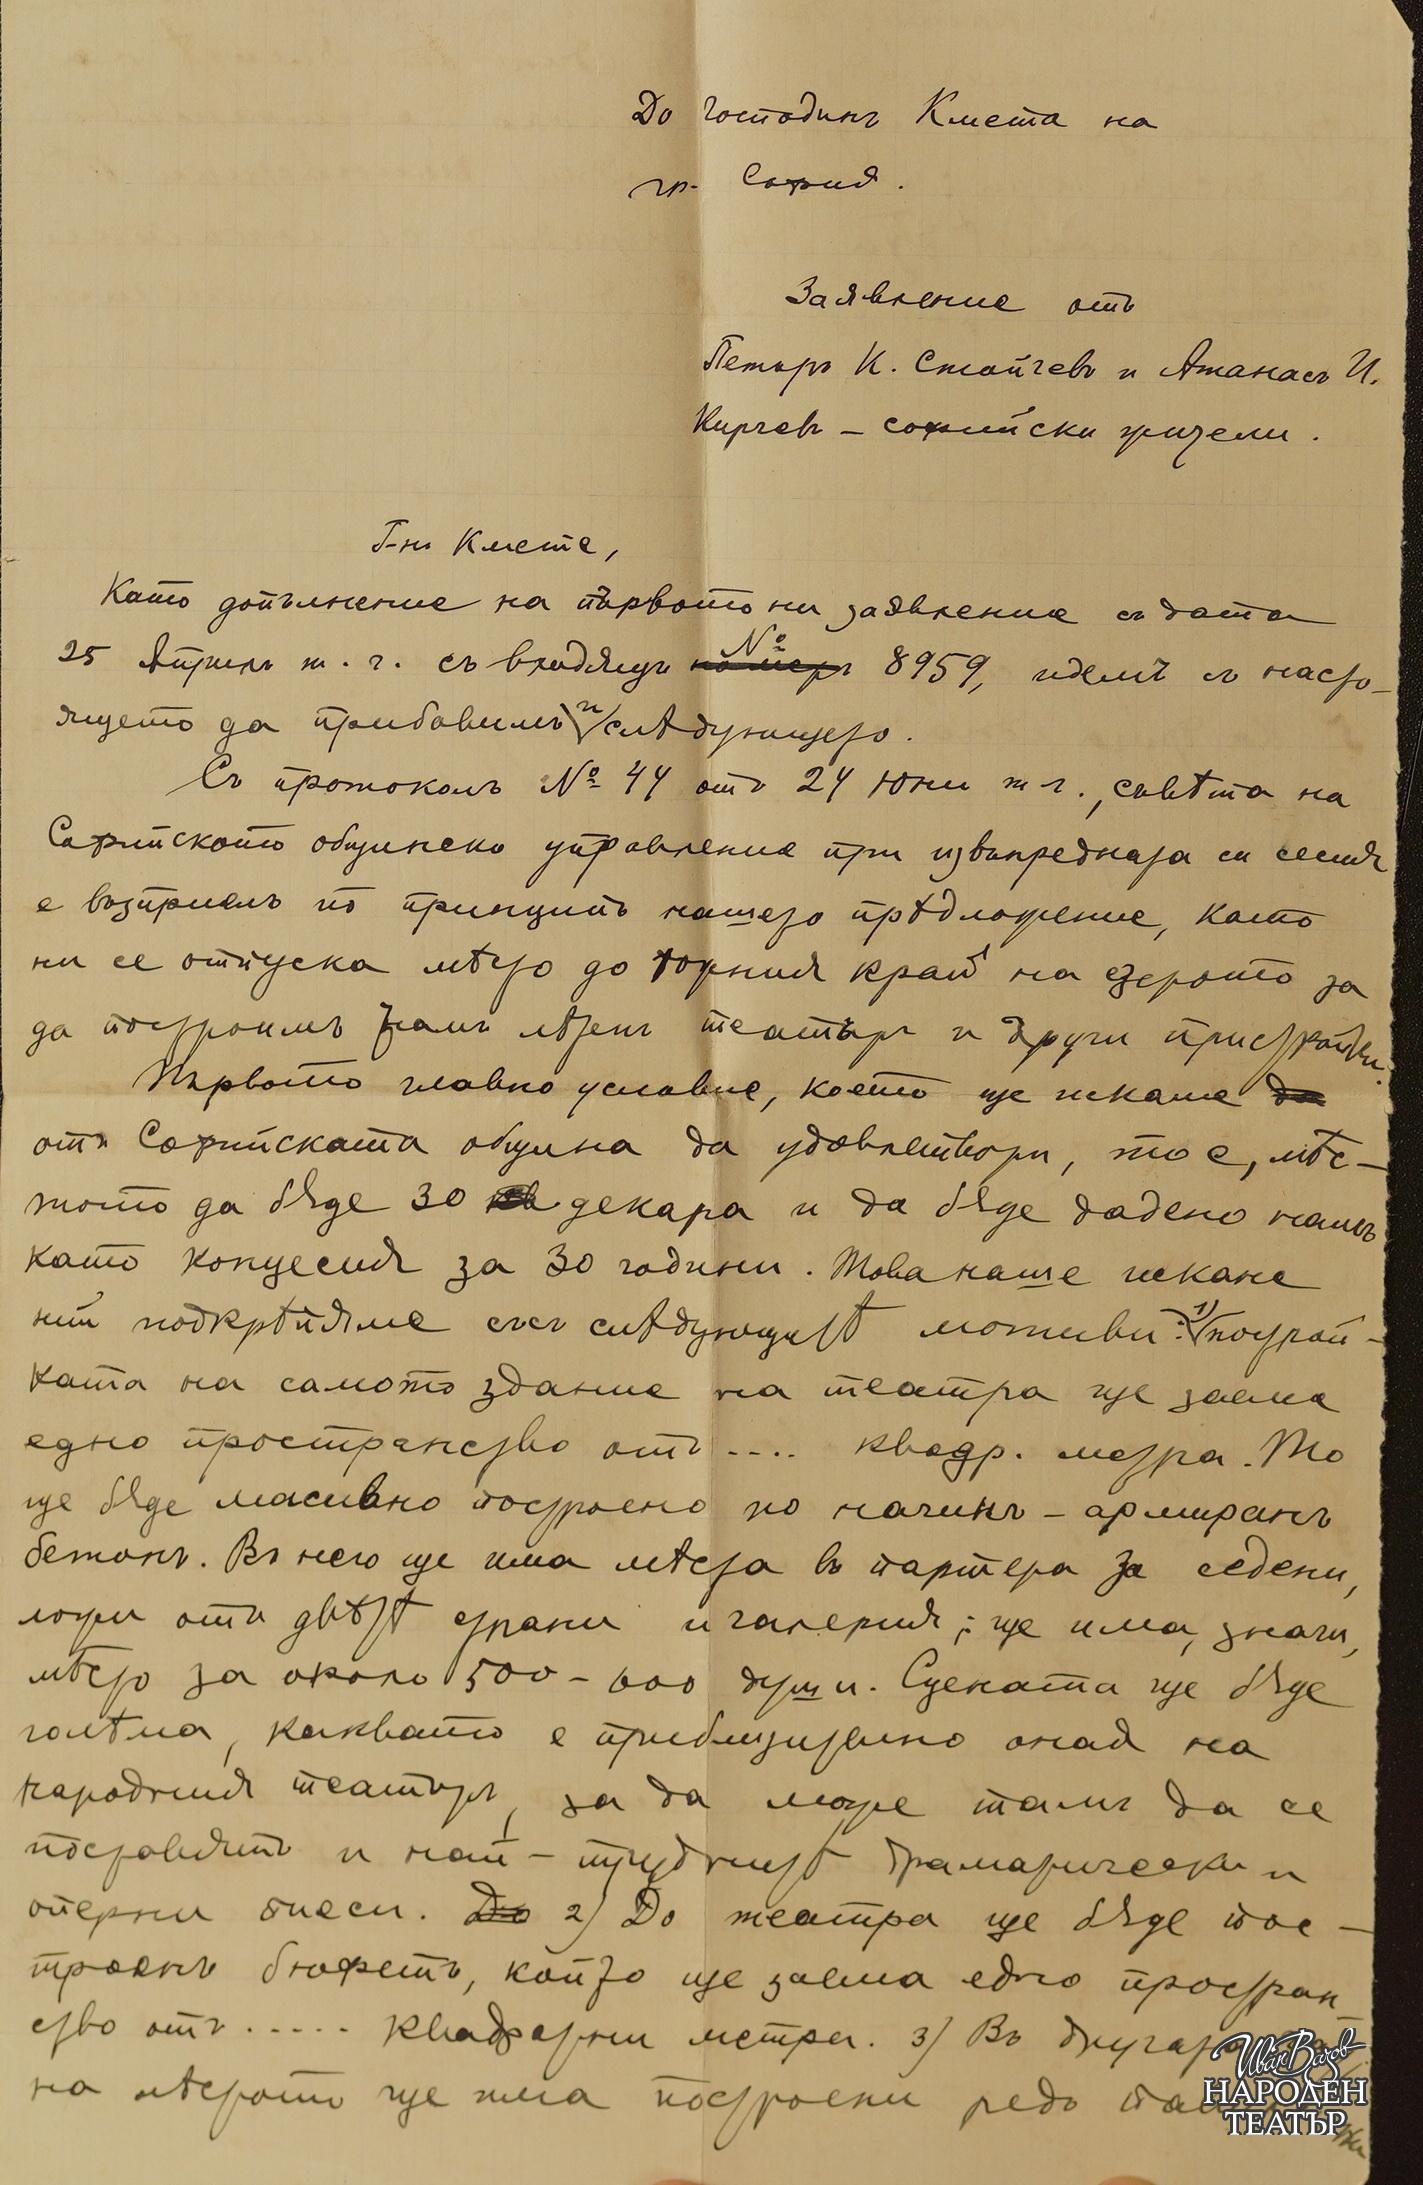 До Господинъ Кмета на
гр. София.
Заявление отъ
Петъръ К. Стойчевъ и Атанасъ И.
Кирчевъ – софийски жители.
Г-нъ Кмете,
Като допълнение на първото ни заявление съ дата
25 Априлъ т. г. съ входящъ номеръ № 8959, идемъ съ насто-
ящето да прибавимъ и слѣдующето.
Съ протоколъ № 44 отъ 24 Юни т г., съвѣта на
Софийското общинско управление при извънредната си сесия
е възприелъ по принципъ нашето прѣдложение, като
ни се отпуска мѣсто до горния край на езерото за
да построимъ тамъ лѣтенъ театъръ и други пристройки.
Първото главно условие, което ще искаме да
отъ Софийската община да удовлетвори, то е, мѣс-
тото да бѫде 30 декара и да бѫде дадено намъ
като концесия за 30 години. Това наше искане
ний подкрѣпяме съсъ слѣдующитѣ мотиви: 1) построй-
ката на самото здание на театра ще заема
едно пространство отъ .... квадр. метра. То
ще бѫде масивно построено по начинъ – армиранъ
бетонъ. Въ него ще има мѣста въ партера за седени,
ложи отъ двѣтѣ страни и галерия; ще има, значи,
мѣсто за около 500 – 600 души. Сцената ще бѫде
голѣма, каквато е приблизително оная на
народния театъръ, за да може тамъ да се
поставятъ и най-труднитѣ драматически и
оперни пиеси. До 2) До театра ще бѫде пос-
троенъ бюфетъ, който ще заема едно простран-
ство отъ ..... квадратни метра. 3) Въ
на мѣстото ще има построени редъ
Иван Вазов
НАРОДЕН
ТЕАТЪР